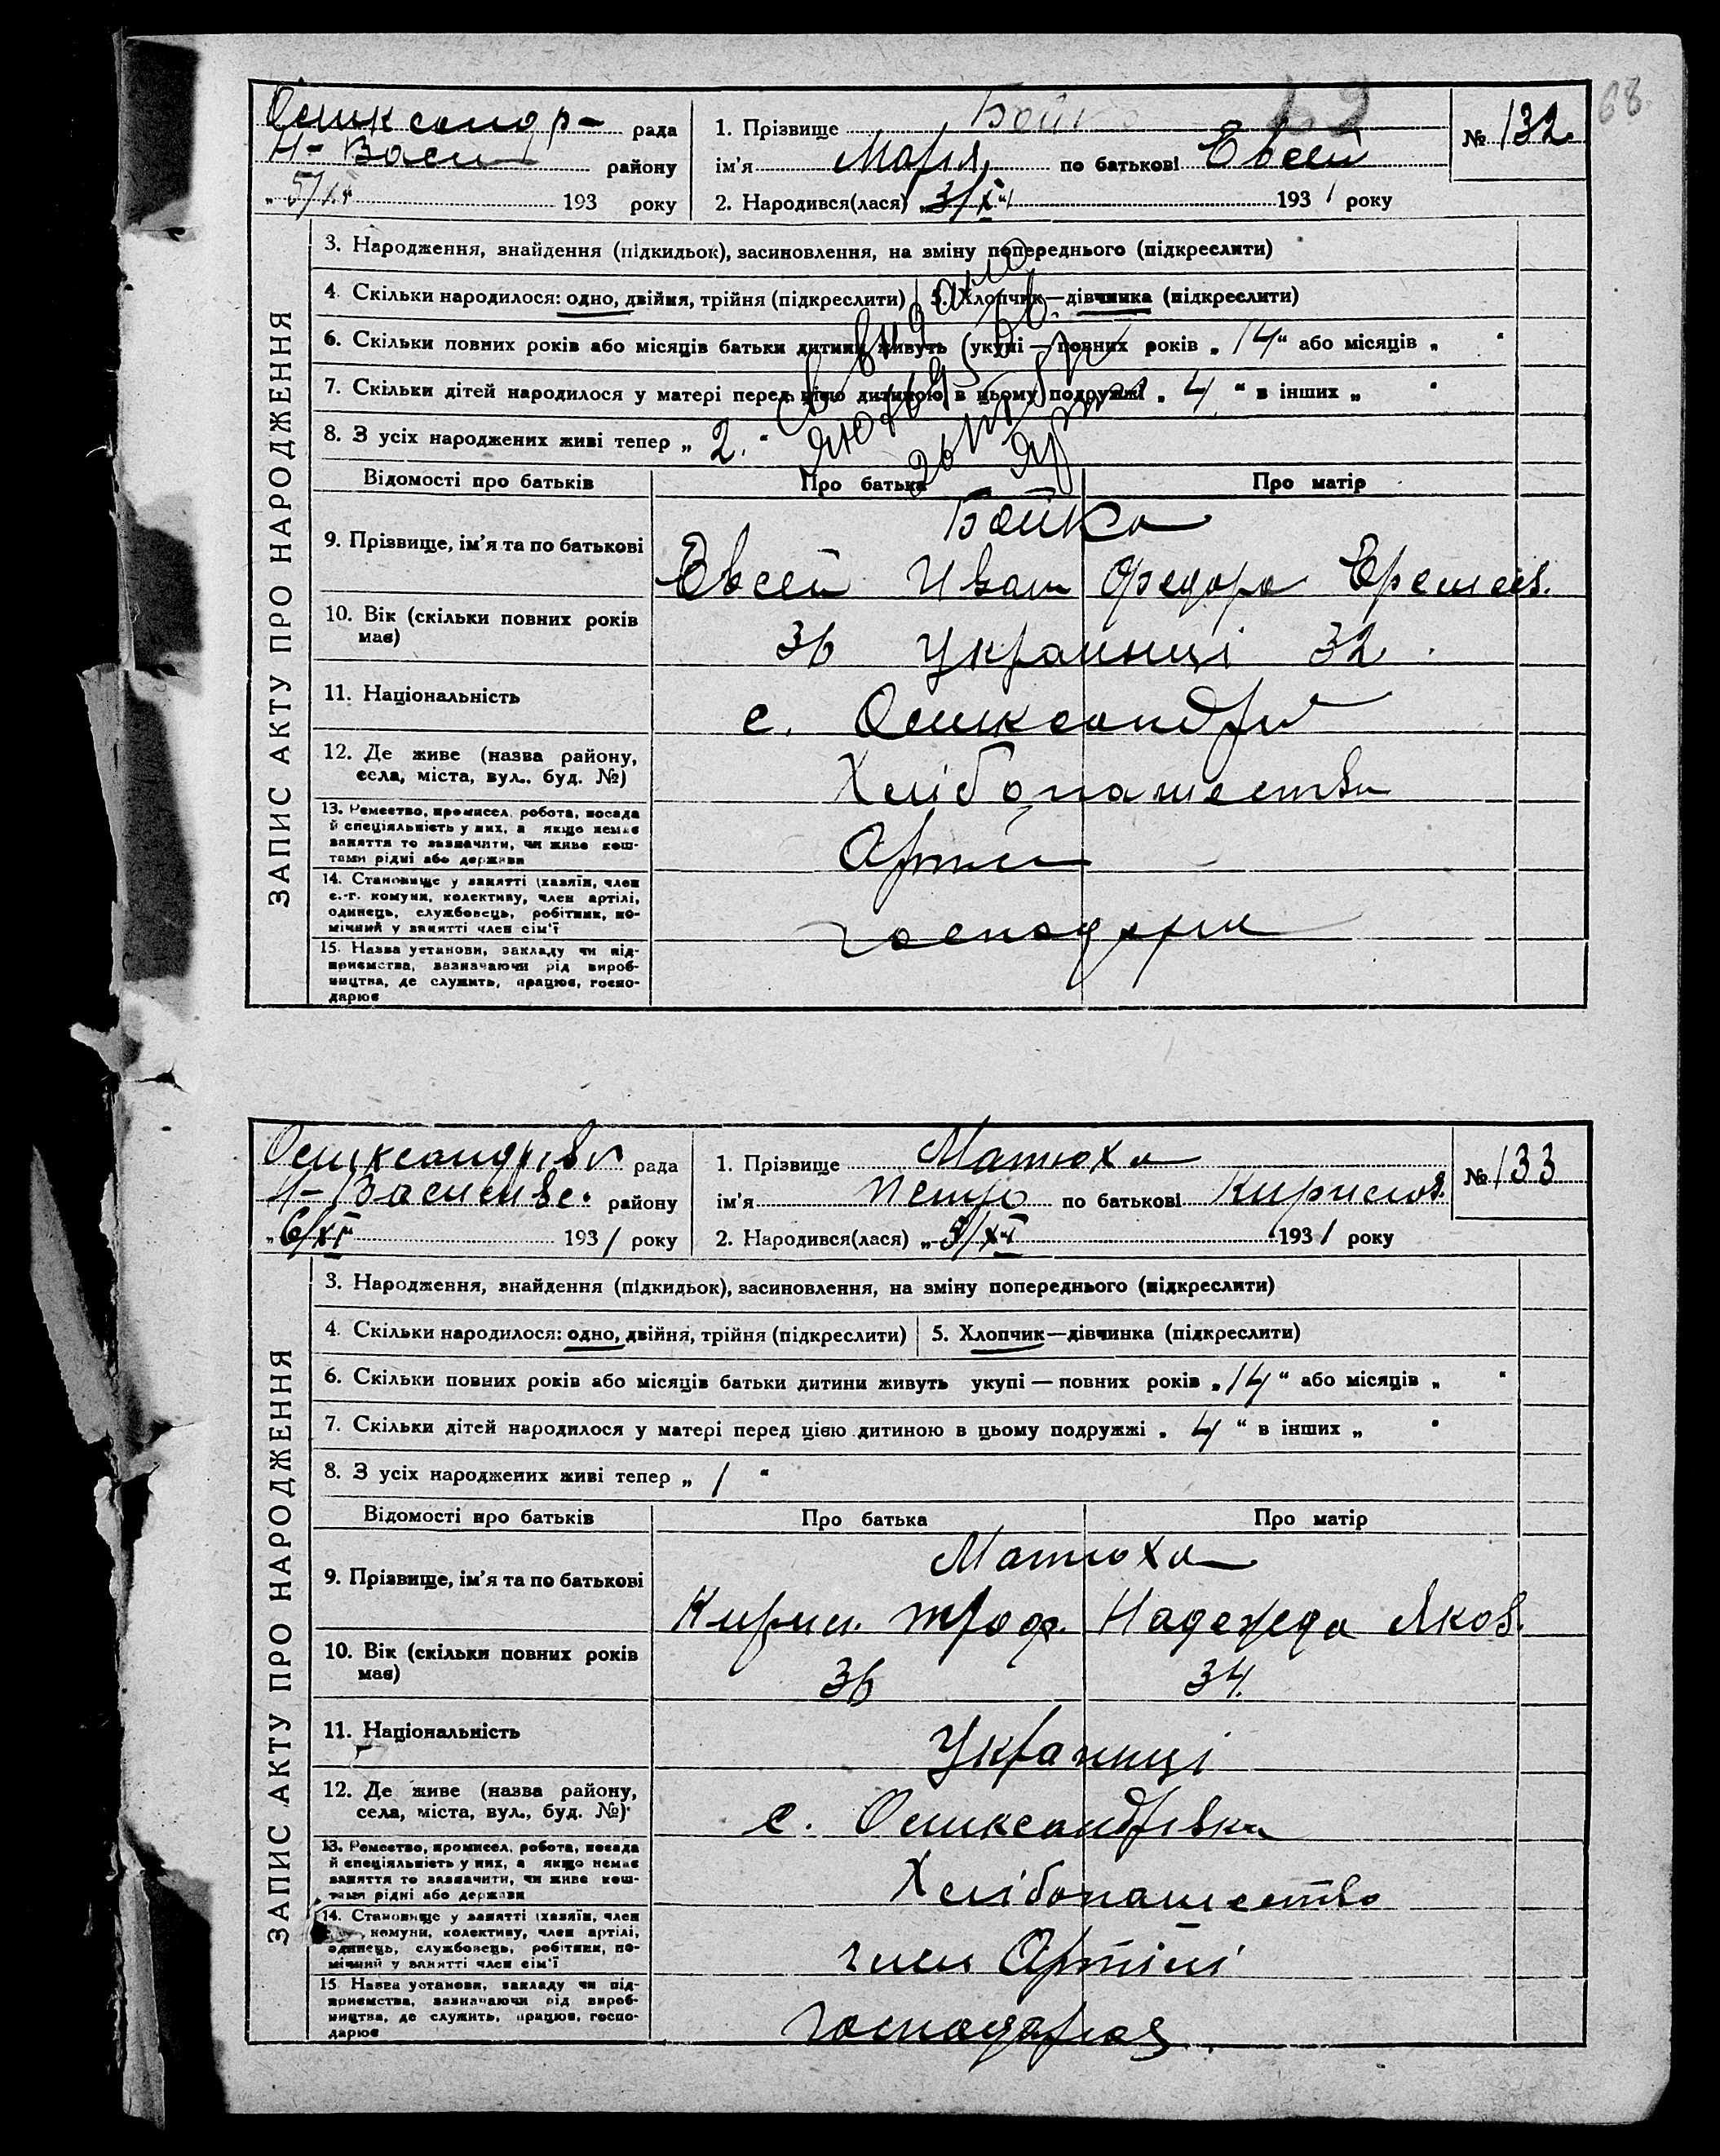 68.
Олександр- рада
Н-Васи района
„5/XI“ 193 року
1. Прізвище Бойко
ім'я Марія по батькові Євсей
2. Народився(лася) „3/XI“ 1931 року
№ 132
ЗАПИС АКТУ ПРО НАРОДЖЕННЯ
3. Народження, знайдення (підкидьок), засиновлення, на зміну попереднього (підкреслити)
4. Скільки народилося: одно, двійня, трійня (підкреслити) 5. Хлопчик—дівчинка (підкреслити)
6. Скільки повних років або місяців батьки дитини живуть (укупі — повних років „14“ або місяців „ “
7. Скільки дітей народилося у матері перед цією дитиною в цьому подружжі „4“ в інших „ “
8. З усіх народжених живі тепер „2.“
Відомості про батьків Про батька Про матір
9. Прізвище, ім'я та по батькові
Бойко
Євсей Иван Федора Еремеев.
10. Вік (скільки повних років має)
36 Українці 32.
11. Національність
с. Олександрів
12. Де живе (назва району, села, міста, вул., буд. №)
Хліборашество
13. Ремество, промисел, робота, посада
й спеціяльність у них, а якщо немає
заняття то зазначити, чи живе кош-
тами рідні або держави
Артіл
14. Становище у занятті (хазяїн, член
с.-г. комуни, колективу, член артілі,
одинець, службовець, робітник, по-
мічний у занятті член сім'ї
господарк
15. Назва установи, закладу чи під-
приємства, зазначаючи рід вироб-
ництва, де служить, працює, госпо-
дарює
Олександрівк рада
Н-Васильвс. району
„6/XI 1931 року
1. Прізвище Матюха
ім'я Петро по батькові Кирилов.
2. Народився(лася) „5/XI“ 1931 року
№ 133
ЗАПИС АКТУ ПРО НАРОДЖЕННЯ
3. Народження, знайдення (підкидьок), засиновлення, на зміну попереднього (підкреслити)
4. Скільки народилося: одно, двійня, трійня (підкреслити) 5. Хлопчик—дівчинка (підкреслити)
6. Скільки повних років або місяців батьки дитини живуть укупі — повних років „14“ або місяців „ “
7. Скільки дітей народилося у матері перед цією дитиною в цьому подружжі „4“ в інших „ “
8. З усіх народжених живі тепер „1“
Відомості про батьків Про батька Про матір
9. Прізвище, ім'я та по батькові
Матюха
Кирил. Троф. Надежда Яков.
10. Вік (скільки повних років
має)
36 34.
11. Національність
Українці
12. Де живе (назва району,
села, міста, вул., буд. №)
с. Олександрівка
13. Ремество, промисел, робота, посада
й спеціяльність у них, а якщо немає
заняття то зазначити, чи живе кош-
тами рідні або держави
Хлібопашество
14. Становище у занятті (хазяїн, член
комуни, колективу, член артілі,
одинець, службовець, робітник, по-
мічний у занятті член сім'ї
член Артілі
15 Назва установи, закладу чи під-
приємства, зазначаючи рід вироб-
ництва, де служить, працює, госпо-
дарює
господарює